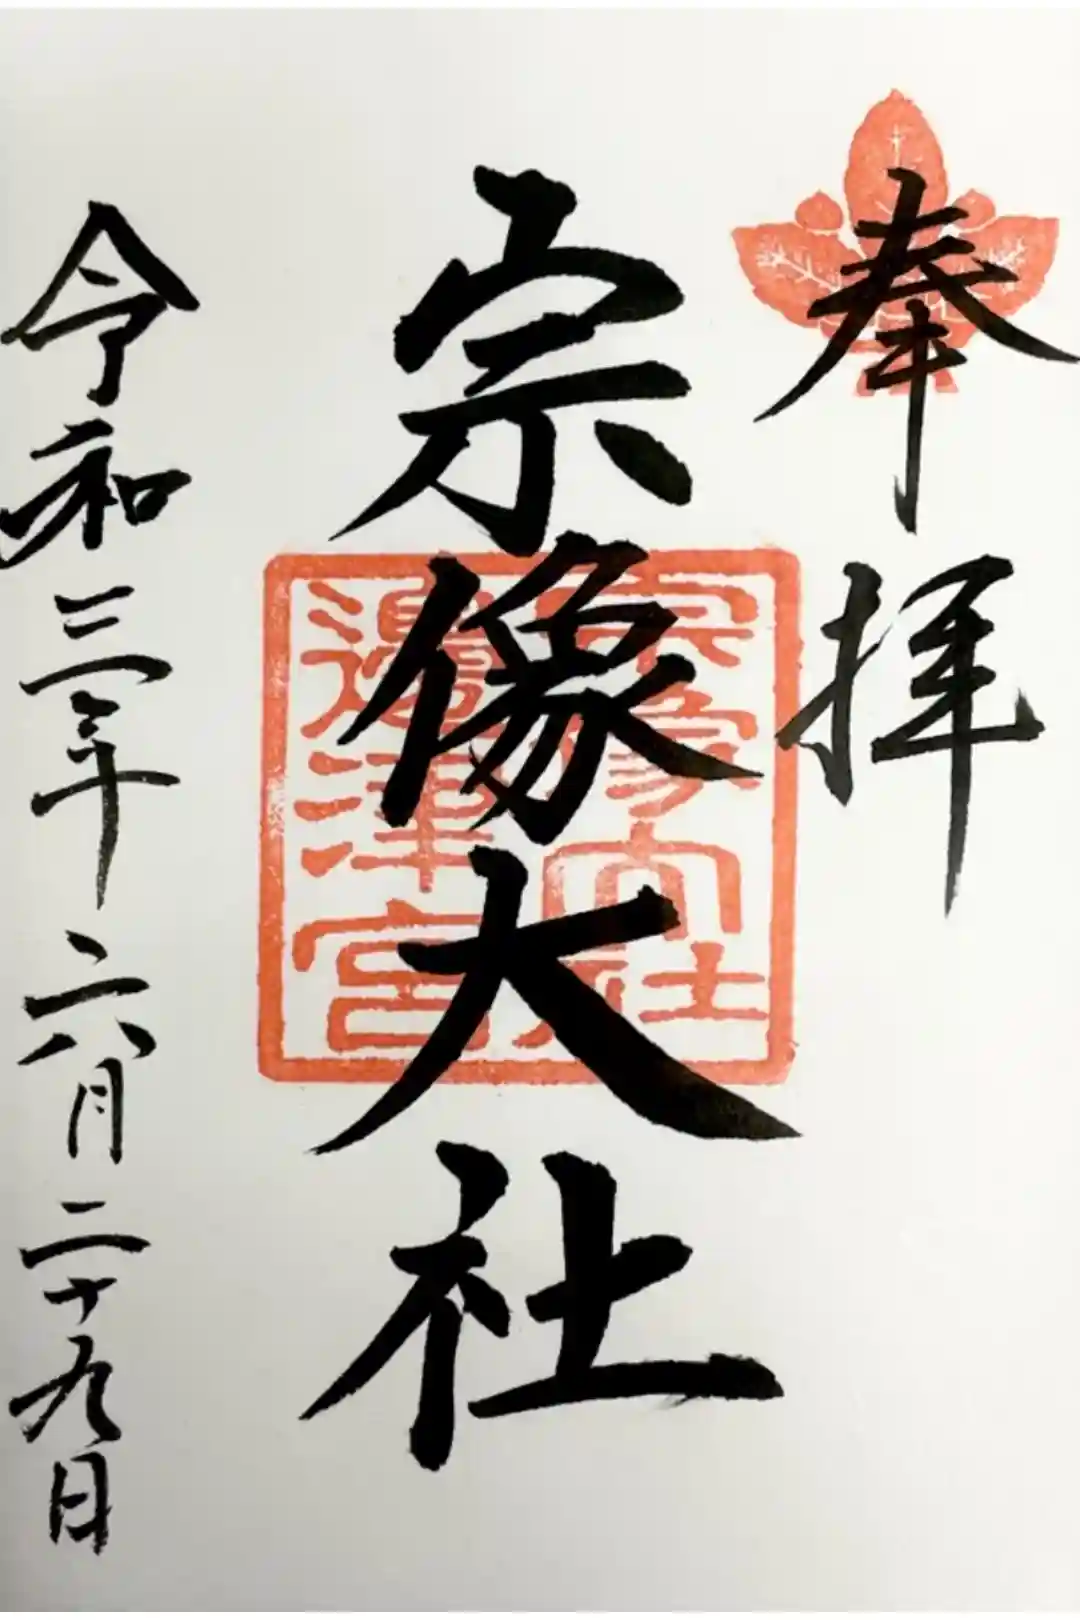 奉拝
宗像大社
宗像大社
邊津宮
令和三年六月二十九日